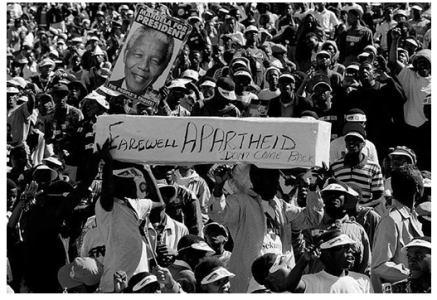 MANDELA FOR
PRESIDENT
FAREWELL APARTHEID
DON'T COME BACK